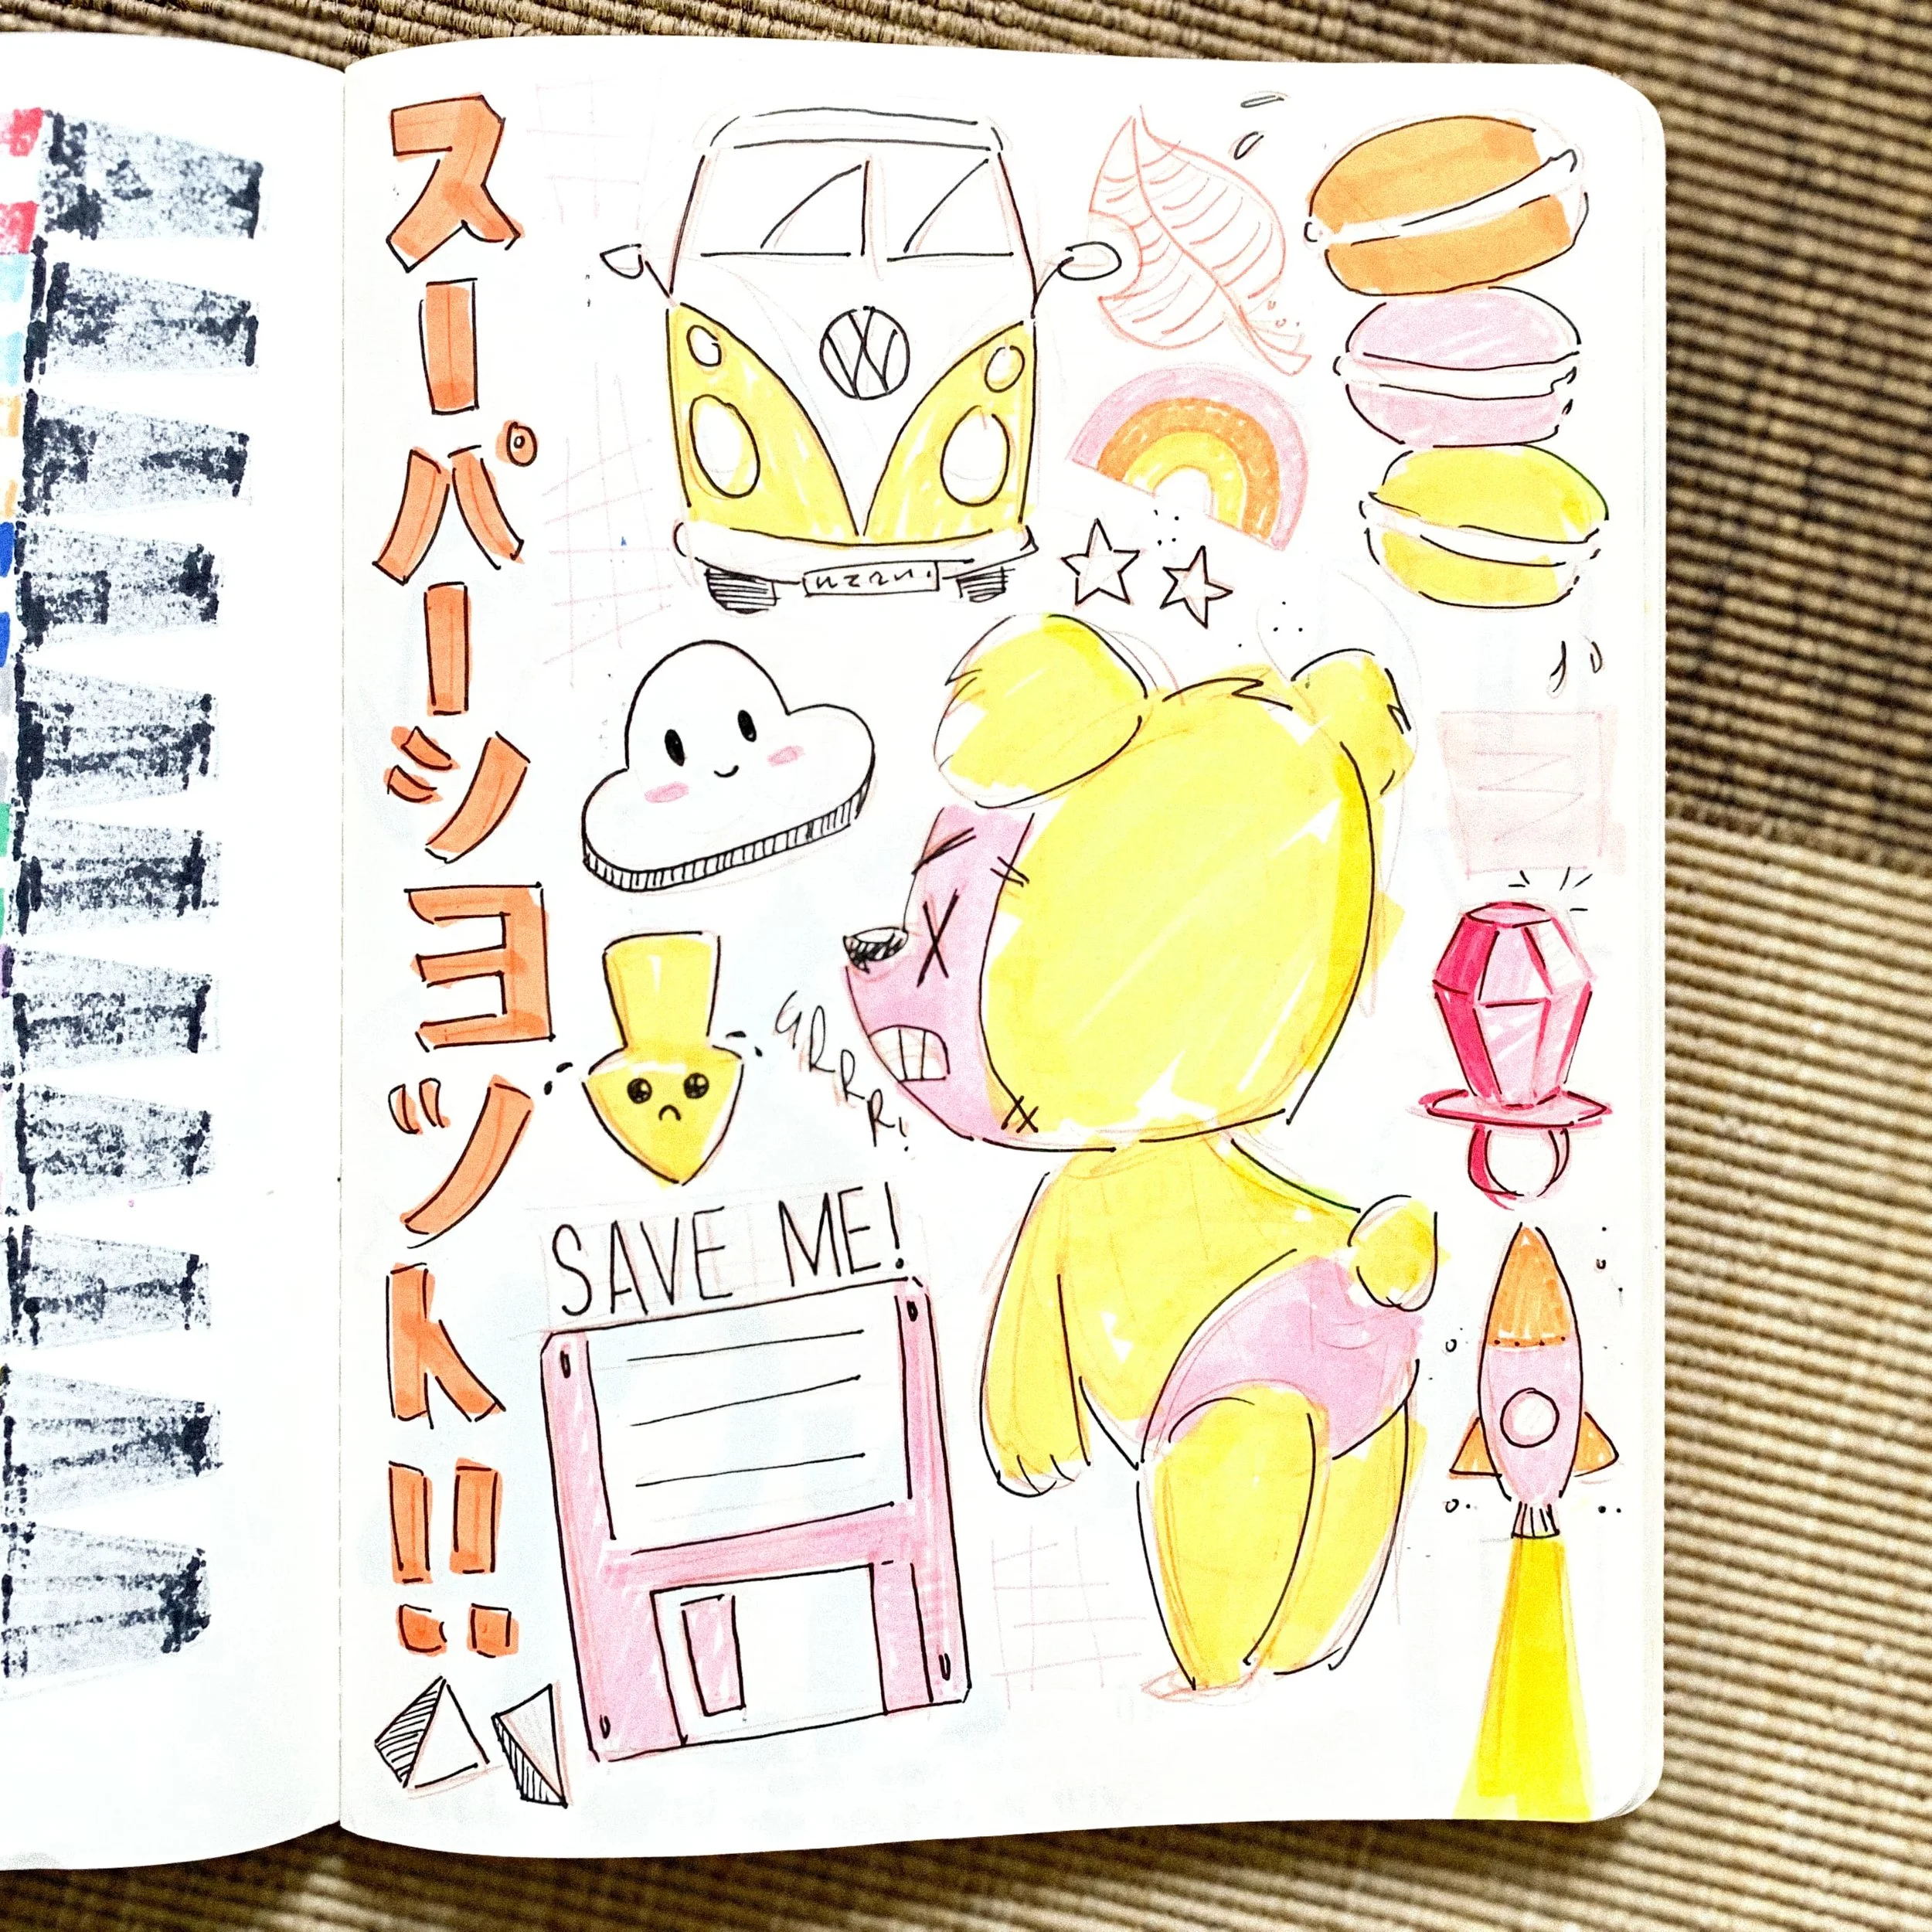 スーパーショット!!
VW
GRRR!
SAVE ME!